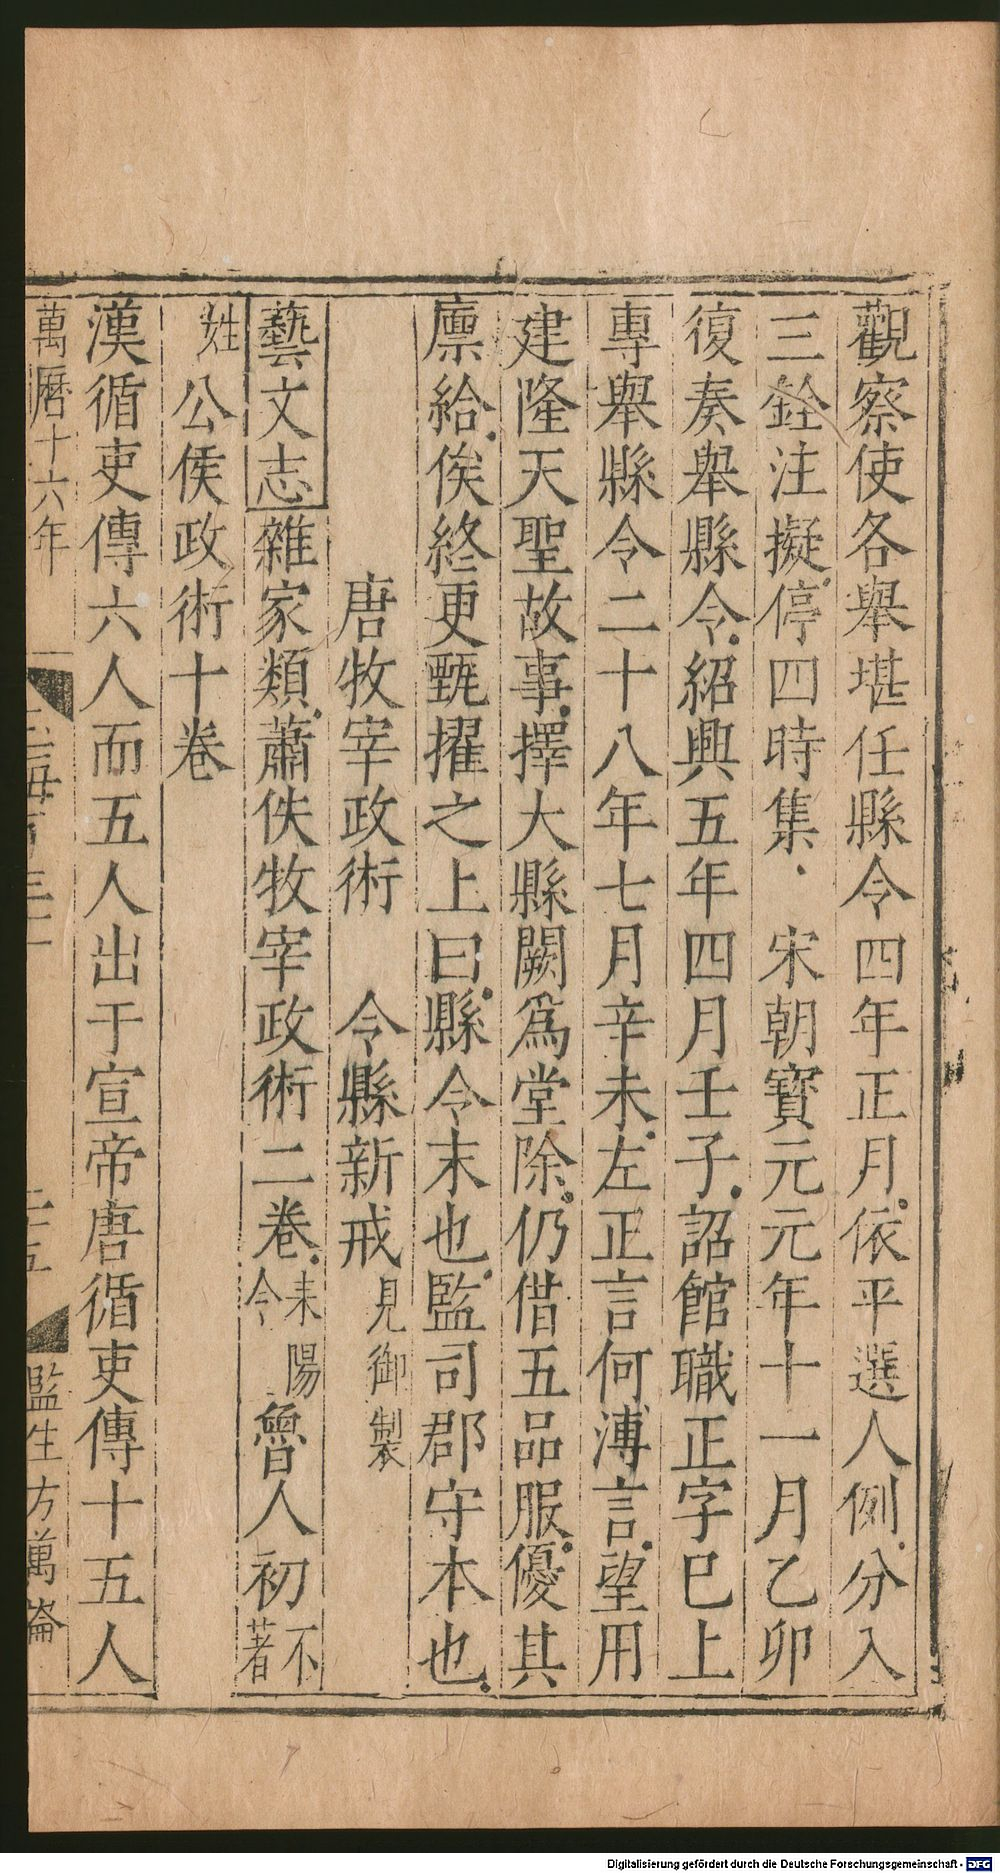 觀察使各舉堪任縣令四年正月依平選人例分入
三銓注擬停四時集 宋朝寶元元年十一月乙卯
復奏舉縣令紹興五年四月壬子詔館職正字巳上
專舉縣令二十八年七月辛未左正言何溥言望用
建隆天聖故事擇大縣闕爲堂除仍借五品服優其
廩給俟終更甄擢之上曰縣令末也監司郡守本也
唐牧宰政術 令縣新戒見御製
藝文志雜家類蕭佚牧宰政術二卷耒陽令魯人初不著
姓 公侯政術十卷
漢循吏傳六人而五人出于宣帝唐循吏傳十五人
萬曆十六年
監生方萬
Digitalisierung gefördert durch die Deutsche Forschungsgemeinschaft - DFG